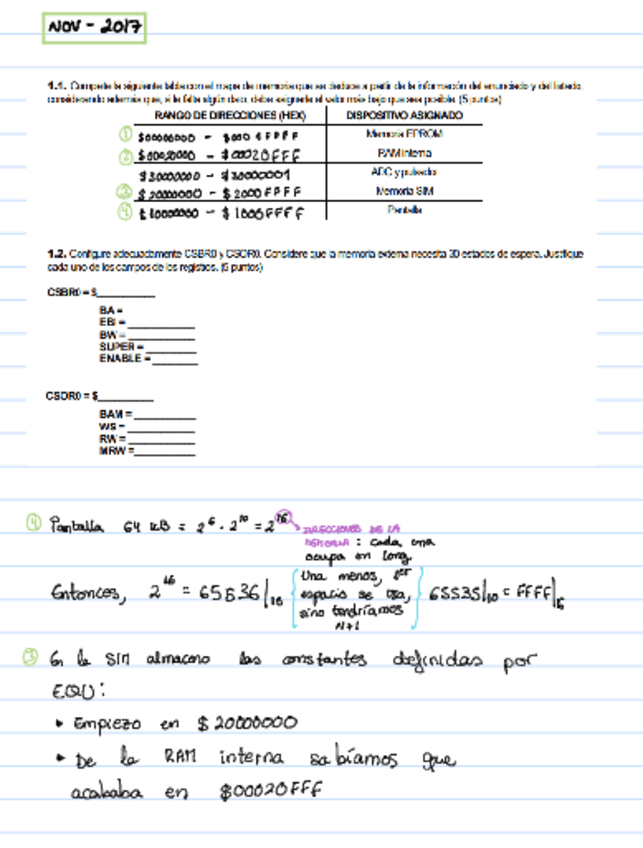 NOV - 2017
1.1. Complete la siguiente tabla con el mapa de memoria que se deduce a partir de la información del enunciado y del listado,
considerando además que, si le falta algún dato, debe asignarle el valor más bajo que sea posible. (5 puntos)
RANGO DE DIRECCIONES (HEX) DISPOSITIVO ASIGNADO
① $00000000 - Memoria EPROM
② $00020000 - $00020FFF RAM interna
$30000000 - $30000001 ADC y pulsador
③ $20000000 - $2000FFFF Memoria SIM
④ $10000000 - $1000FFFF Pantalla
1.2. Configure adecuadamente CSBR0 y CSOR0. Considere que la memoria externa necesita 30 estados de espera. Justifique
cada uno de los campos de los registros. (5 puntos)
CSBR0 = $__________
BA =
EBI = __________
BW = __________
SUPER = __________
ENABLE = __________
CSOR0 = $__________
BAM = __________
WS = __________
RW = __________
MRW = __________
④ Pantalla 64 kB = 2^6 · 2^10 = 2^16 DIRECCIONES DE LA
MEMORIA: cada una
ocupa en long.
Entonces, 2^16 = 65536|10 Una menos, espacio se usa, sino tendríamos N+1 65535|10 = FFFF|16
③ En la SIM almaceno las constantes definidas por
EQU:
• Empiezo en $20000000
• De la RAM interna sabíamos que
acababa en $00020FFF